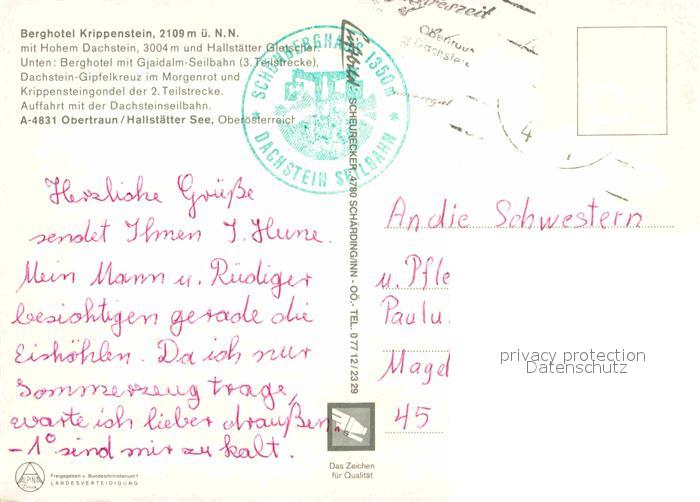 Berghotel Krippenstein, 2109 m ü. N.N.
mit Hohem Dachstein, 3004 m und Hallstätter Gletscher.
Unten: Berghotel mit Gjaidalm-Seilbahn (3. Teilstrecke),
Dachstein-Gipfelkreuz im Morgenrot und
Krippensteingondel der 2. Teilstrecke.
Auffahrt mit der Dachsteinseilbahn.
A-4831 Obertraun / Hallstätter See, Oberösterreich
SCHÖNBERGHAUS 1350m
* DACHSTEIN SEILBAHN *
Obertraun
Dachstein
Luftbild: SCHEURECKER, 4780 SCHÄRDING/INN - OÖ. - TEL. 0 77 12 / 23 29
Herzliche Grüße
sendet Ihnen I. Hune.
Mein Mann u. Rüdiger
besichtigen gerade die
Eishöhlen. Da ich nur
Sommerzeug trage,
warte ich lieber draußen,
-1° sind mir zu kalt.
An die Schwestern
u. Pfle
Paulu
Magd
45
privacy protection
Datenschutz
Das Zeichen
für Qualität
ALPINA
Freigegeben v. Bundesministerium f.
LANDESVERTEIDIGUNG